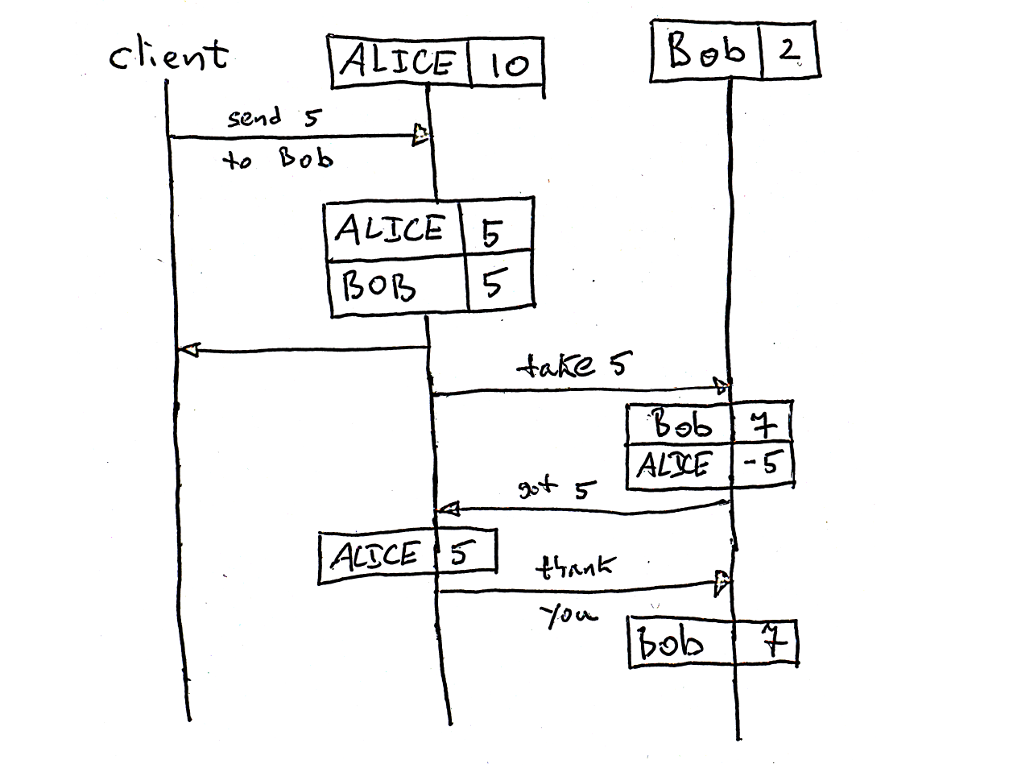 client
ALICE 10
Bob 2
send 5
to Bob
ALICE 5
BOB 5
take 5
Bob 7
ALICE -5
got 5
ALICE 5
thank
you
Bob 7